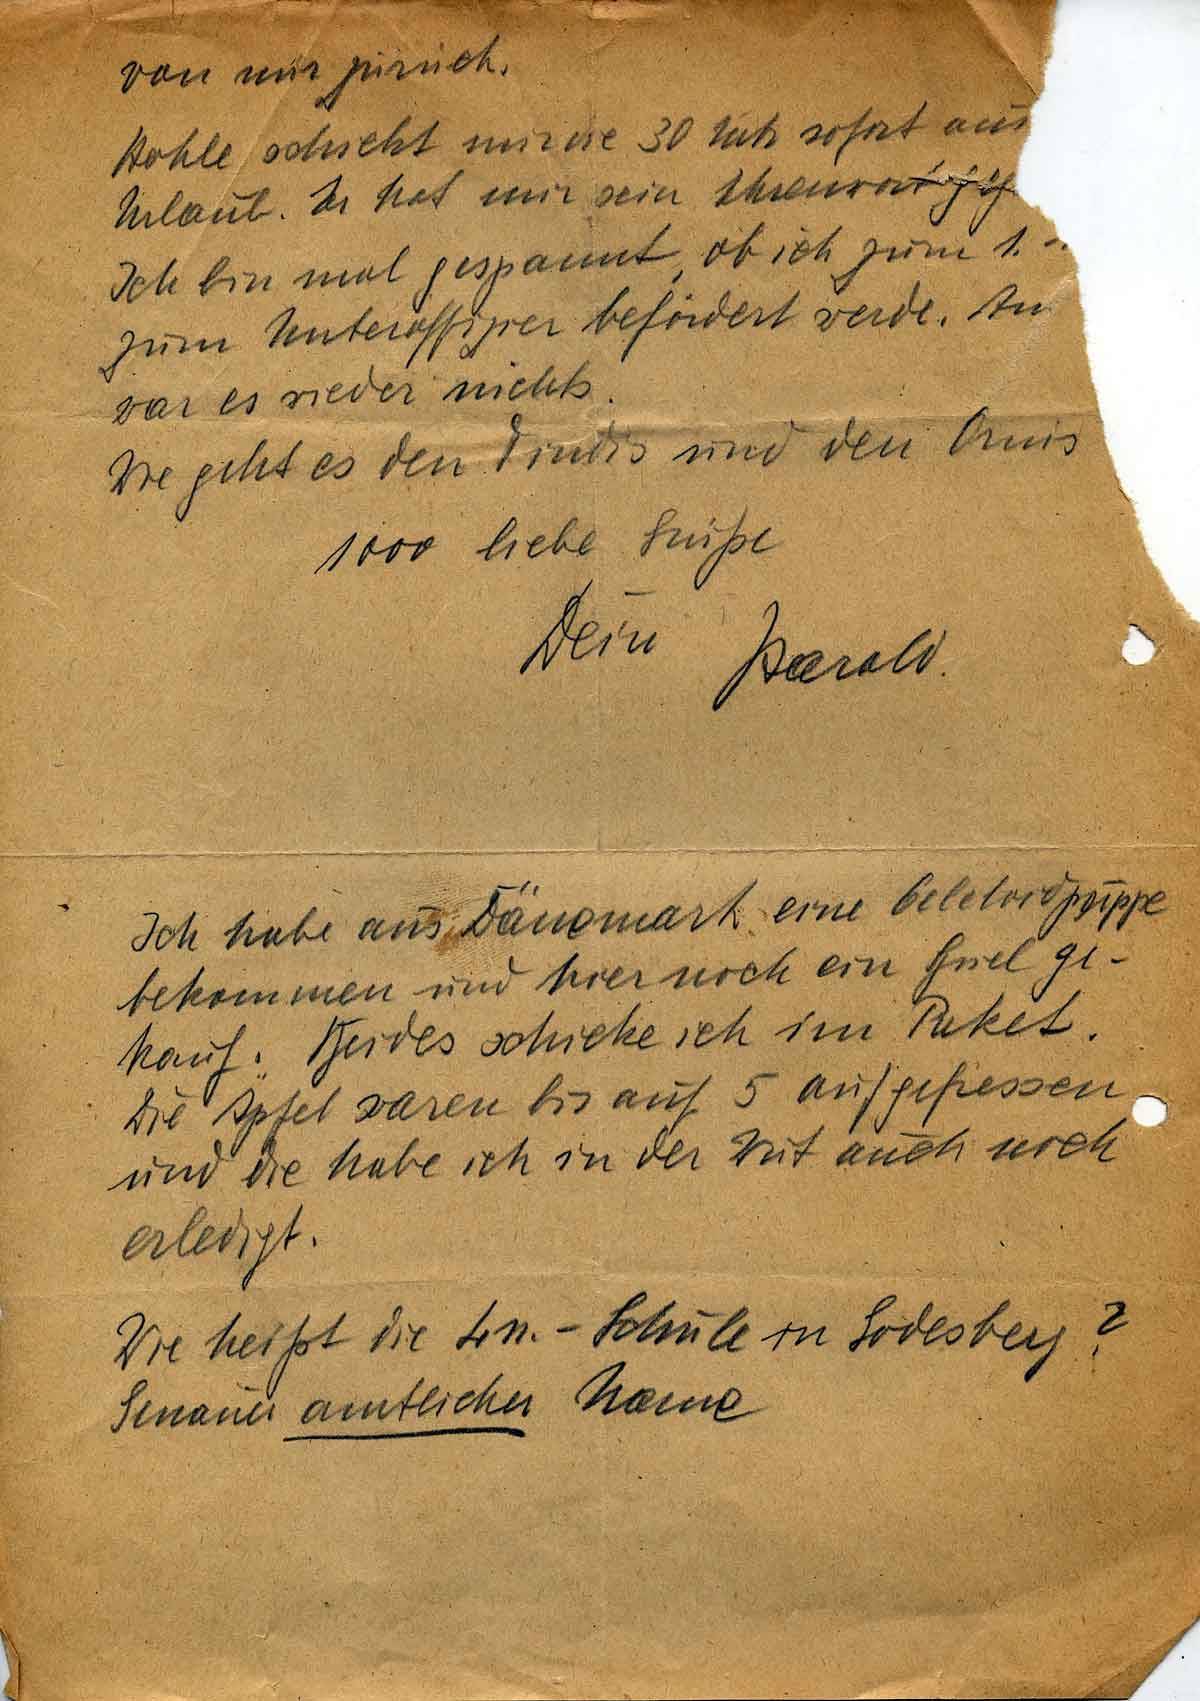 von mir zurück.
Kohle schickt mir die 30 Mk sofort aus
Urlaub. Er hat mir sein Ehrenwort
Ich bin mal gespannt, ob ich zum 1.
zum Unteroffizier befördert werde. Am
war es wieder nichts.
Wie geht es den Dindis und den Omis
1000 liebe Grüße
Dein Harald.
Ich habe aus Dänemark eine Celeloidpuppe
bekommen und hier noch ein Spiel ge-
kauf. Beides schicke ich im Paket.
Die Äpfel waren bis auf 5 aufgefressen
und die habe ich in der Wut auch noch
erledigt.
Wie heißt die Ln.-Schule in Godesberg?
Genauer amtlicher Name